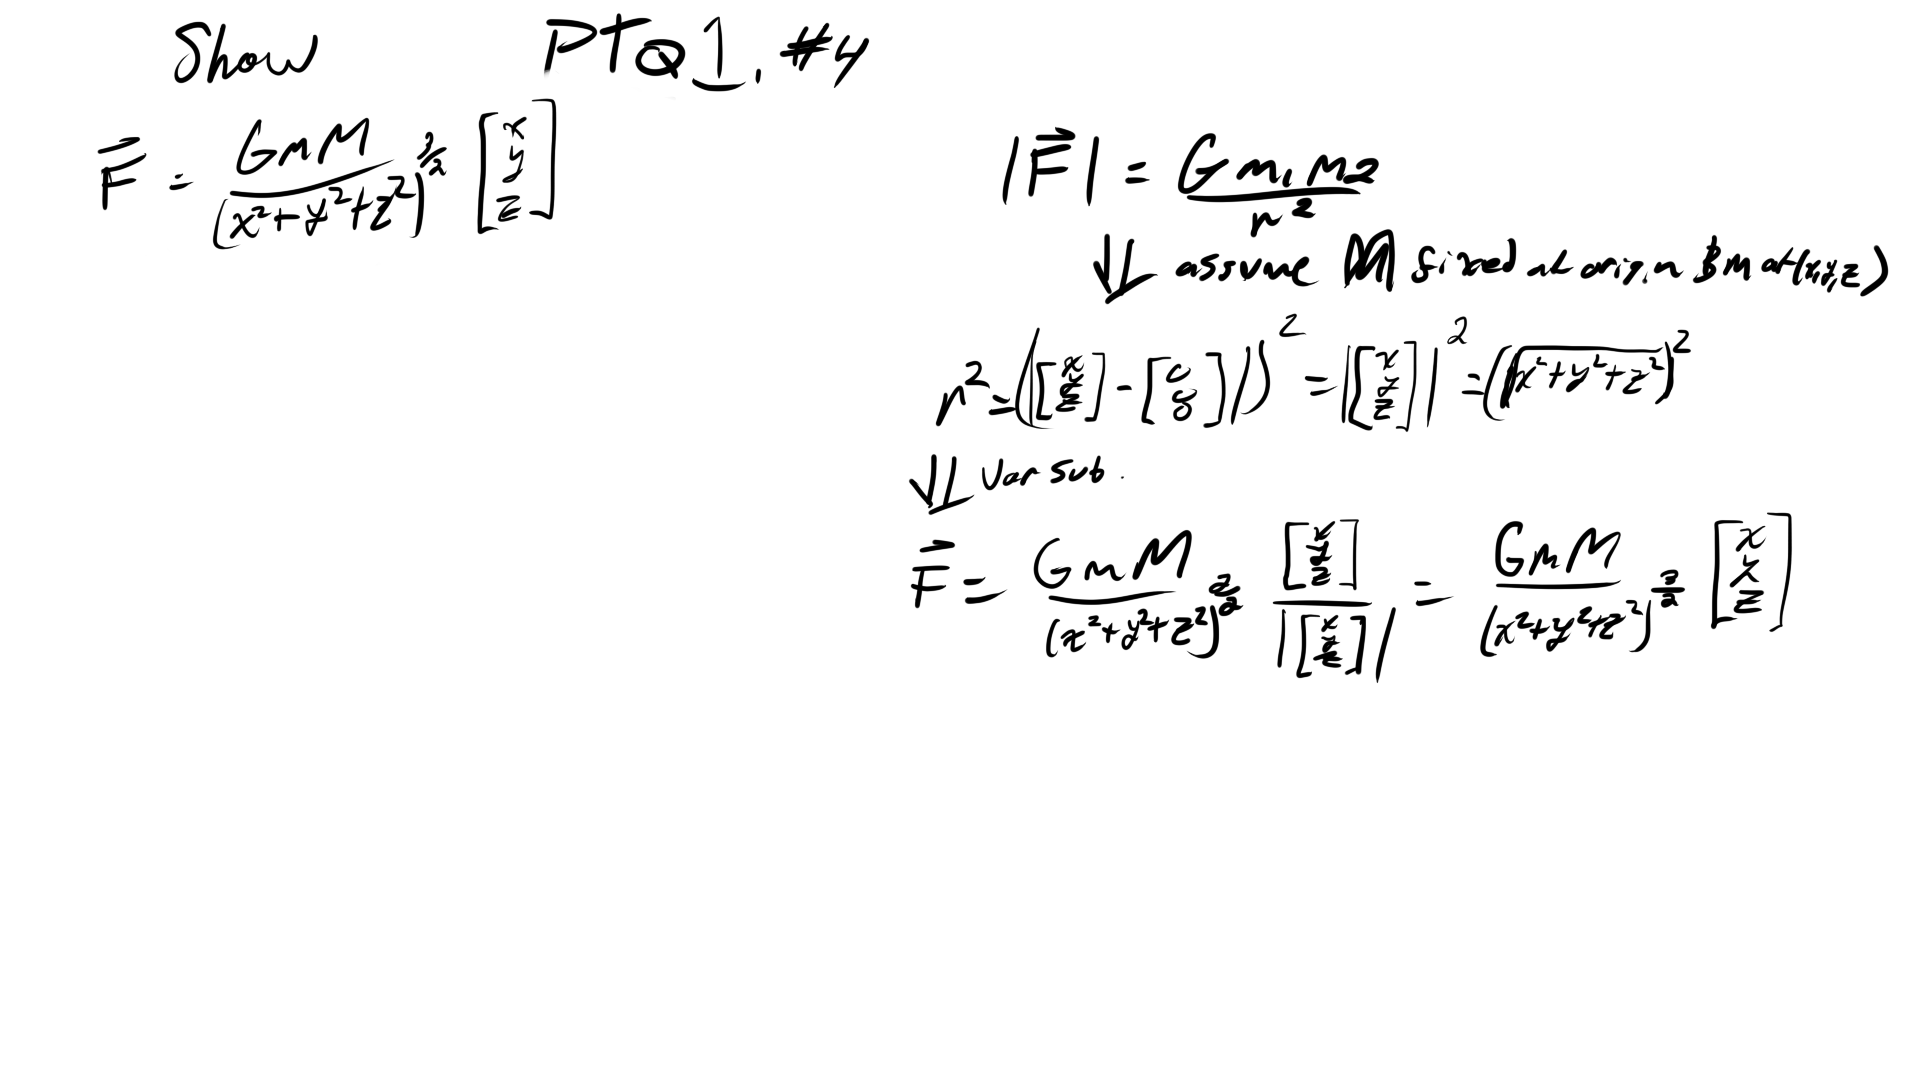 Show PTQ1. #4
F⃗ = GmM / (x²+y²+z²)^(3/2) [x y z]
|F⃗| = G m₁ m₂ / r²
⇓ assume M fixed at origin & m at (x,y,z)
r² = (|[x y z] - [0 0 0]|)² = |[x y z]|² = (√(x²+y²+z²))²
⇓ Var sub.
F⃗ = GmM / (x²+y²+z²)^(2/2) [x y z] / |[x y z]| = GmM / (x²+y²+z²)^(3/2) [x y z]